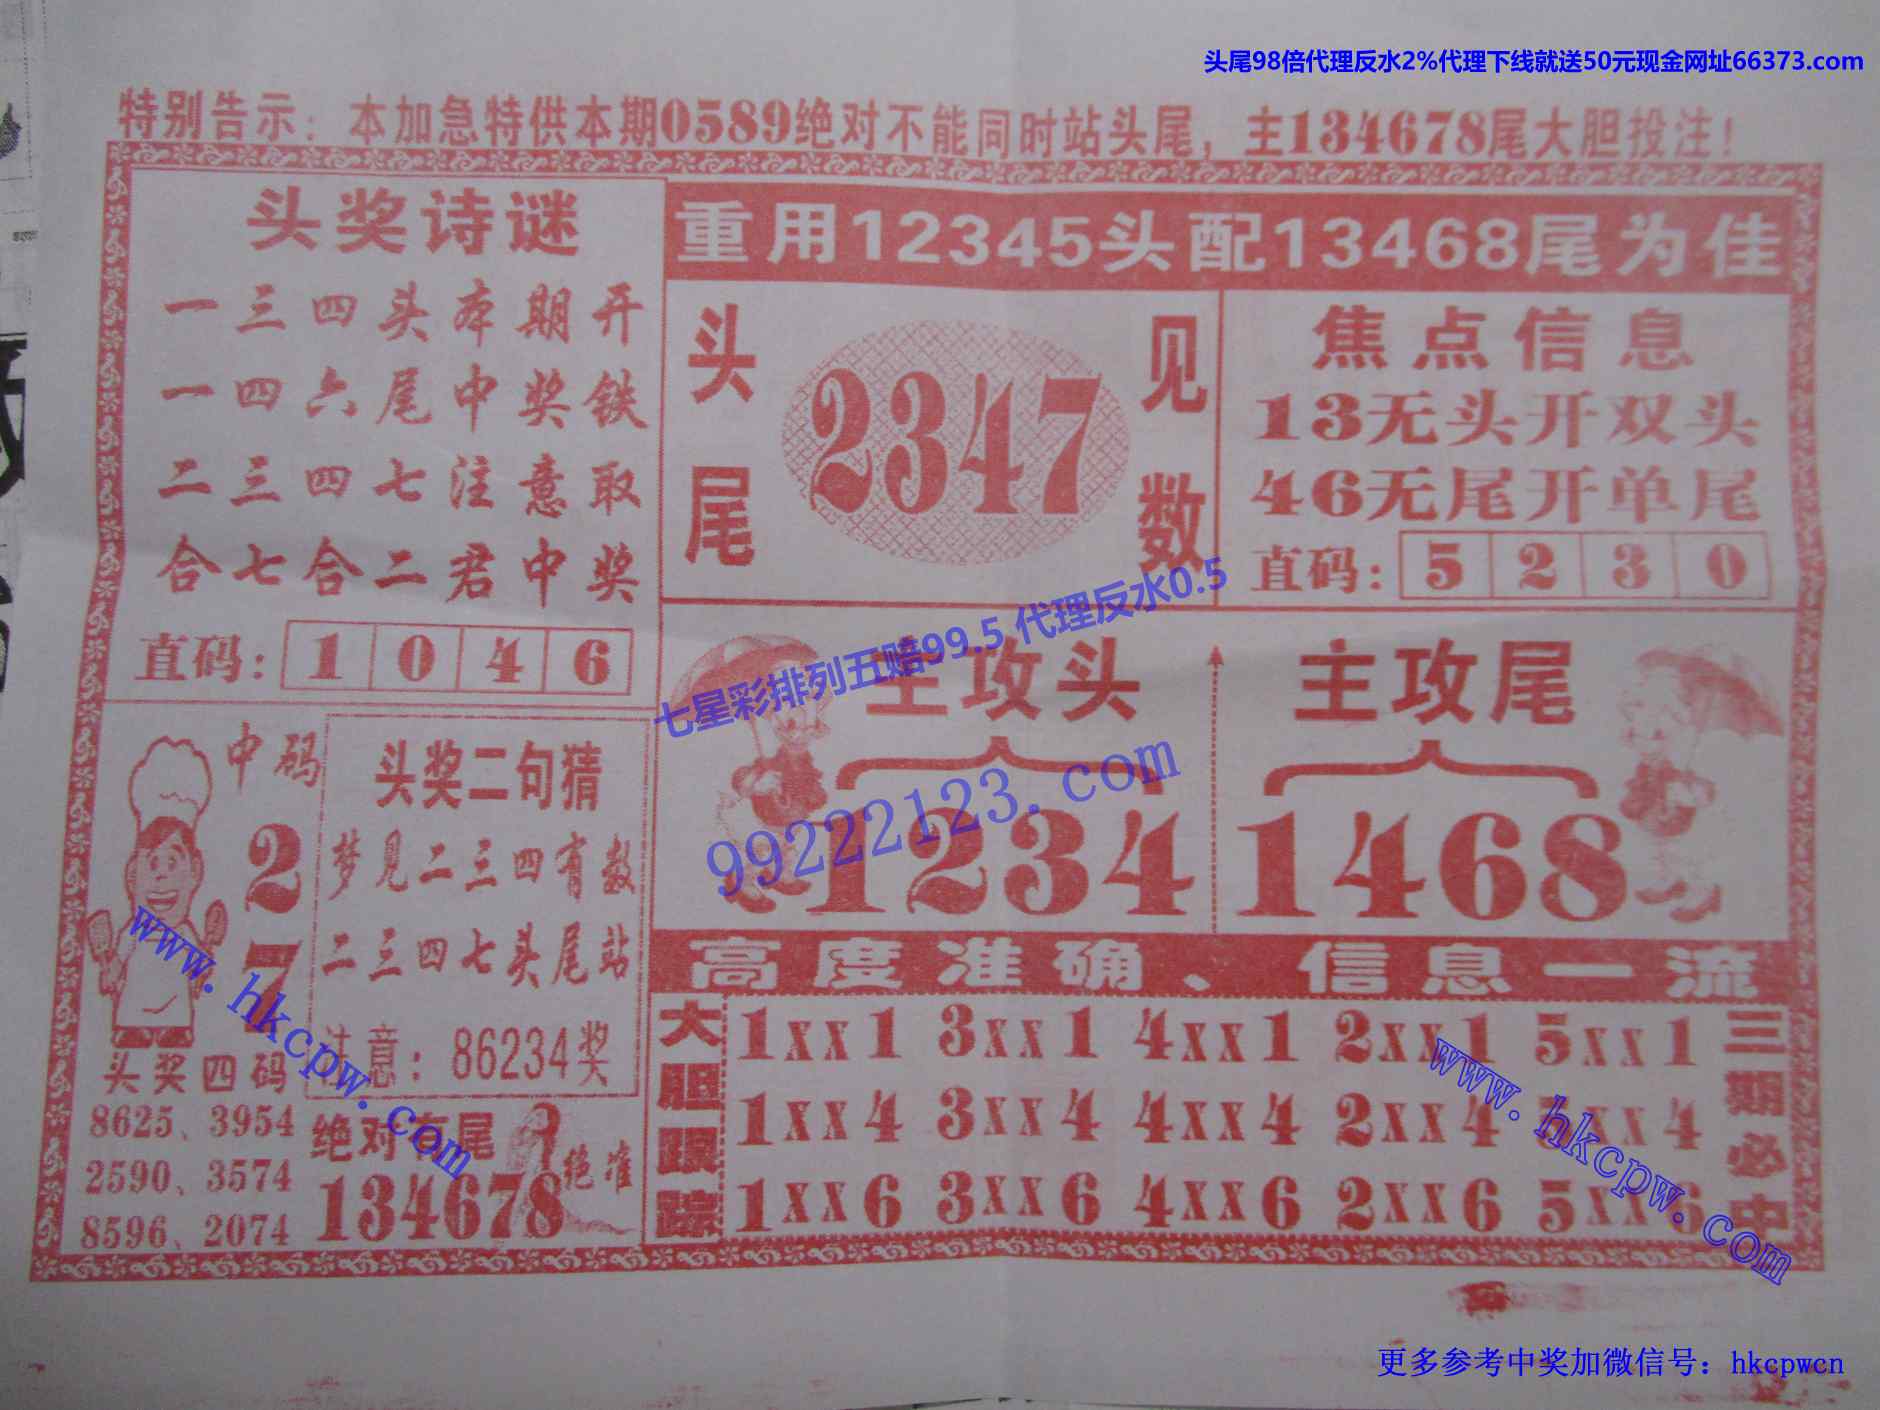 头尾98倍代理反水2%代理下线就送50元现金网址66373.com
特别告示：本加急特供本期0589绝对不能同时站头尾，主134678尾大胆投注！
头奖诗谜
一三四头本期开
一四六尾中奖铁
二三四七注意取
合七合二君中奖
直码：1046
重用12345头配13468尾为佳
头尾
2347
见数
焦点信息
13无头开双头
46无尾开单尾
直码：5230
七星彩排列五赔99.5 代理反水0.5
99222123.com
主攻头
1234
主攻尾
1468
中码
2
7
头奖二句猜
梦见二三四有数
二三四七头尾站
注意：86234奖
www.hkcpw.com
头奖四码
8625、3954
2590、3574
8596、2074
绝对有尾
134678
绝准
高度准确、信息一流
大胆跟踪
1XX1 3XX1 4XX1 2XX1 5XX1
1XX4 3XX4 4XX4 2XX4 5XX4
1XX6 3XX6 4XX6 2XX6 5XX6
三期必中
www.hkcpw.com
更多参考中奖加微信号：hkcpwcn